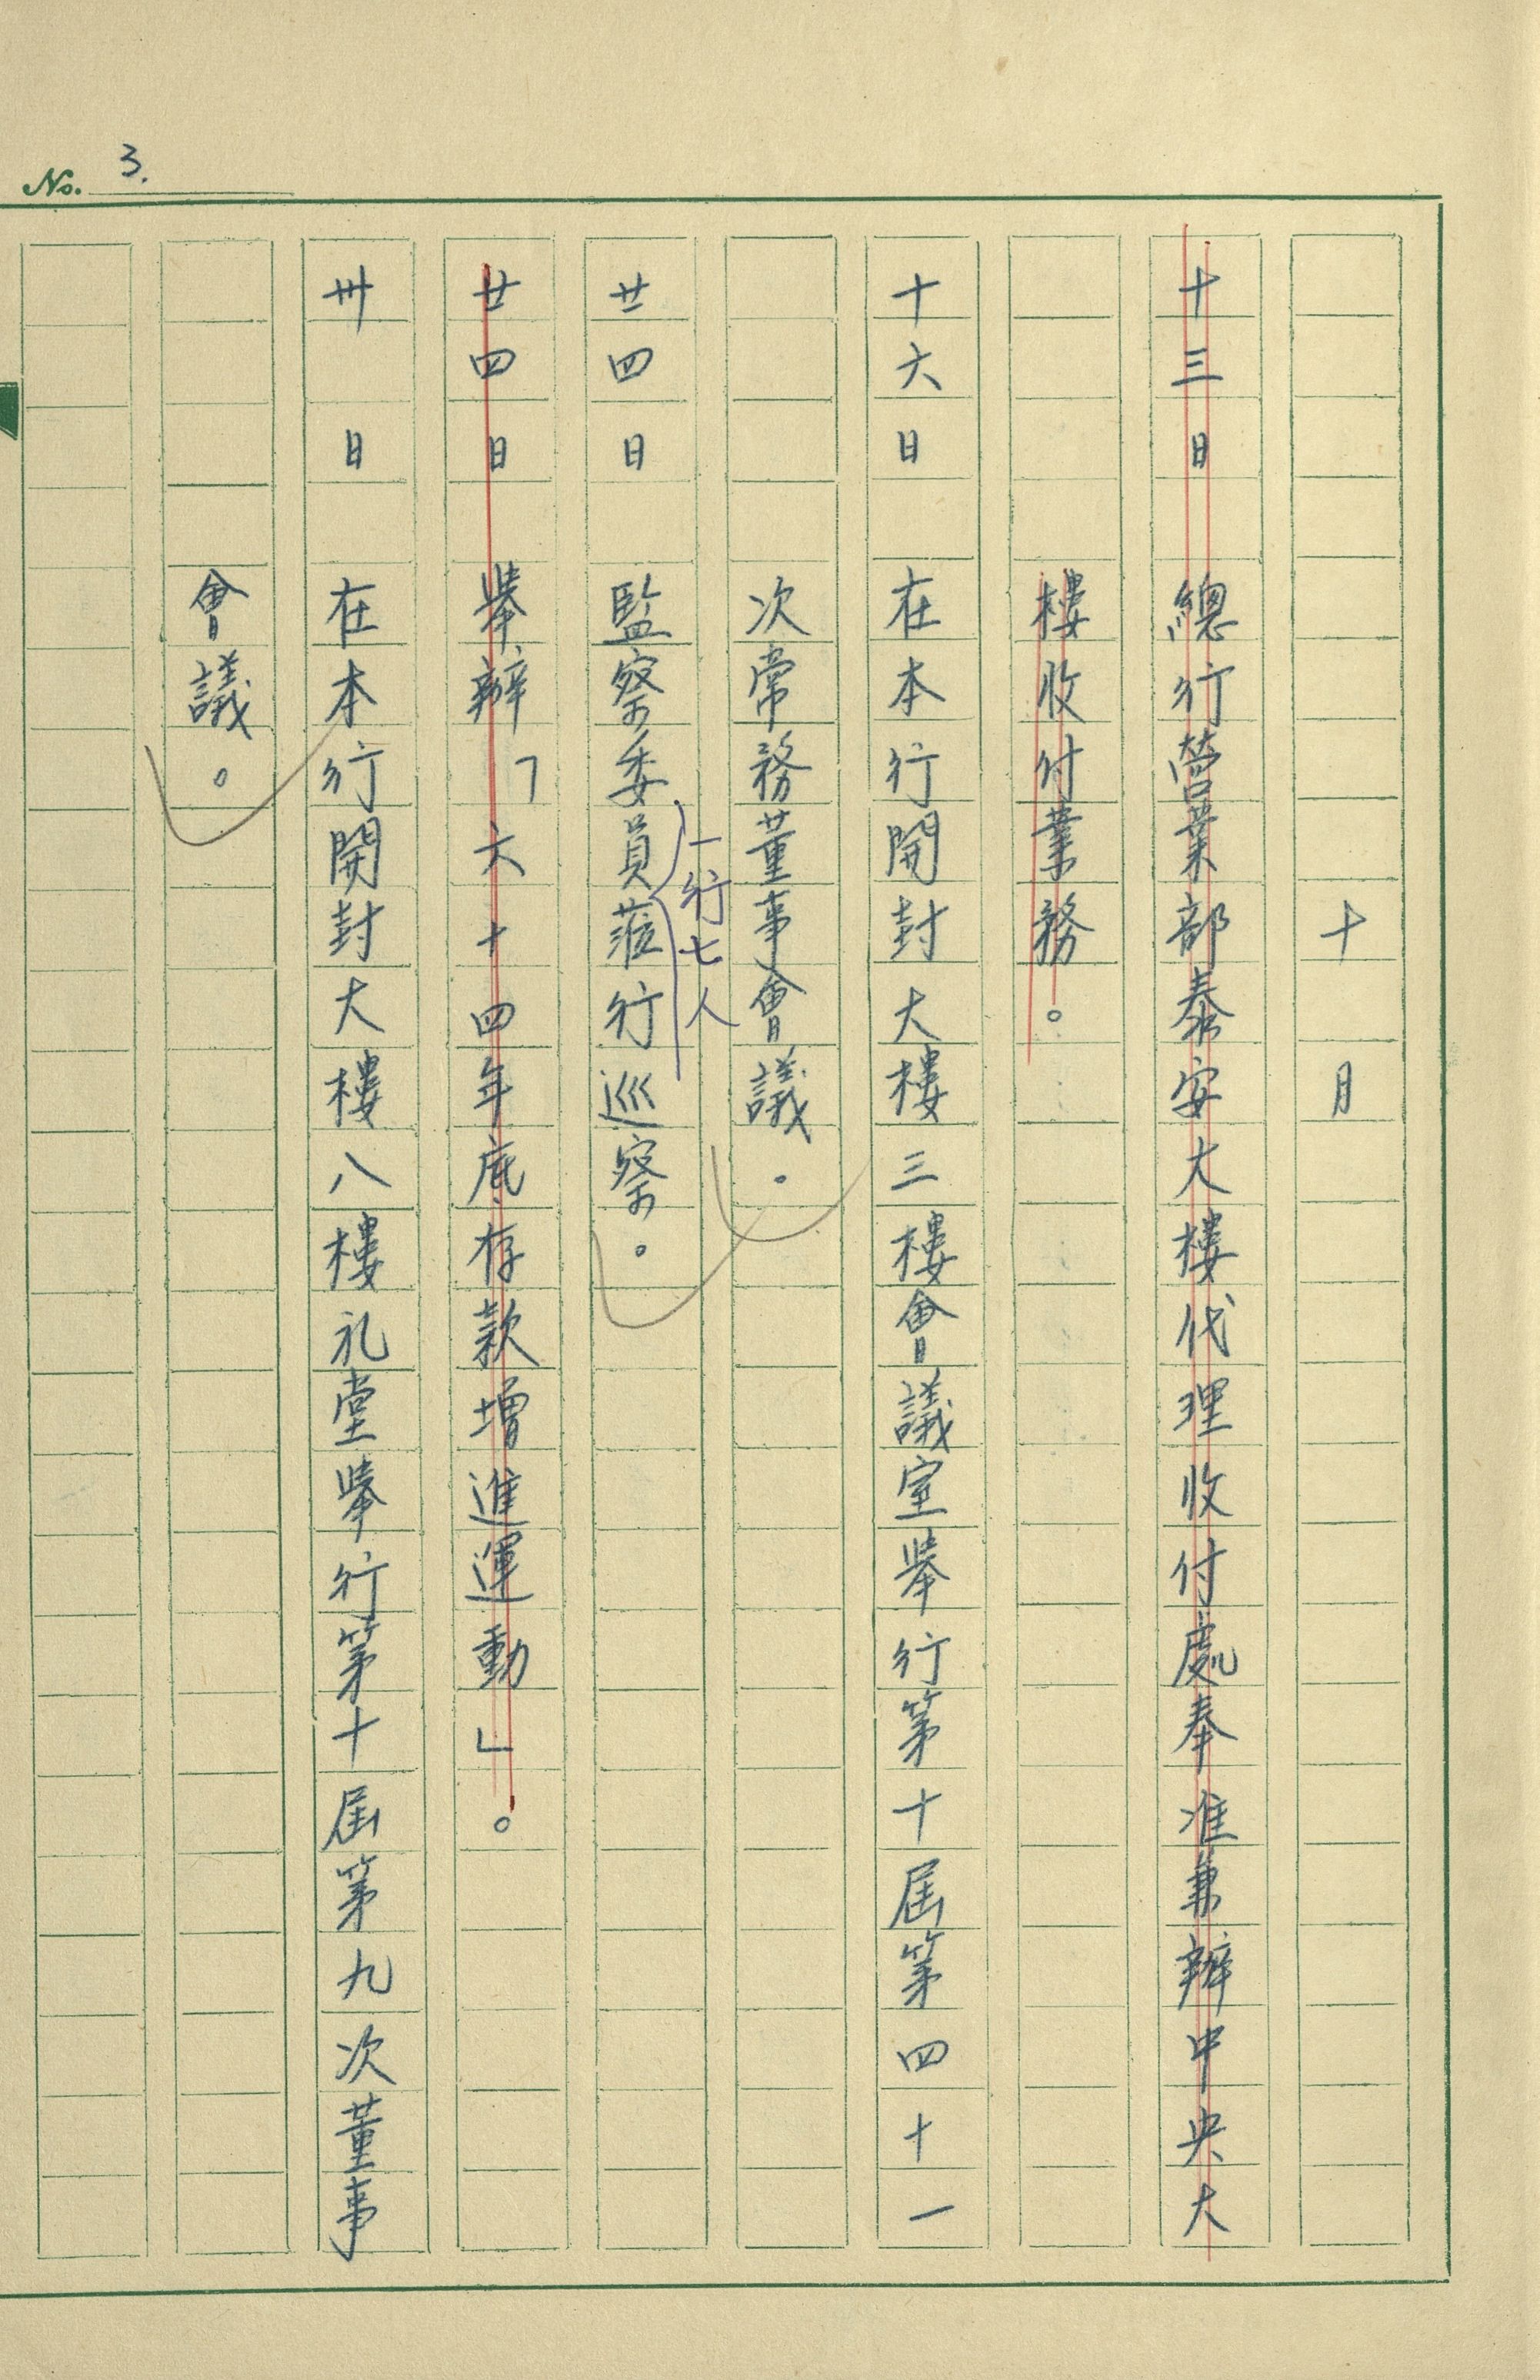 No. 3.
十月
十三日 總行營業部泰安大樓代理收付處奉准兼辦中央大
樓收付業務。
十六日 在本行開封大樓三樓會議室舉行第十屆第四十一
次常務董事會議。
一行七人
廿四日 監察委員蒞行巡察。
廿四日 舉辦「六十四年底存款增進運動」。
卅日 在本行開封大樓八樓礼堂舉行第十屆第九次董事
會議。